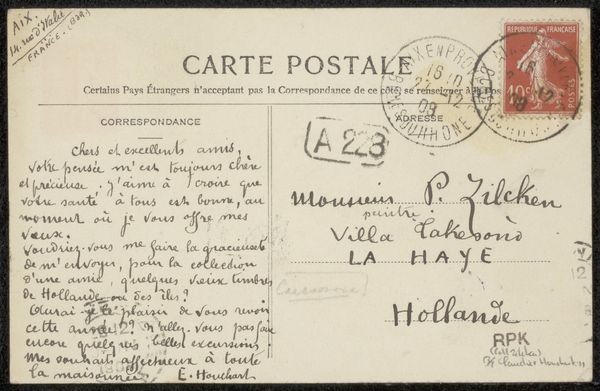 Aix.
14, rue d'Italie
FRANCE. (B.d.R)
CARTE POSTALE
Certains Pays Étrangers n'acceptent pas la Correspondance de ce côté, se renseigner à la Pos
CORRESPONDANCE
Chers et excellents amis,
votre pensée m'est toujours chère
et précieuse. J'aime à croire que
votre santé à tous est bonne, au
moment où je vous offre mes
vœux.
Voudriez-vous me faire la gracieuseté
de m'envoyer, pour la collection
d'une amie, quelques vieux timbres
de Hollande ou des îles?
Aurai-je le plaisir de vous revoir
cette année? N'allez-vous pas faire
encore quelques belles excursions.
Mes souhaits affectueux à toute
la maisonnée. E. Houchart
A 223
AIX EN PROV
16 10
12
09
BCHES DU RHONE
REPUBLIQUE FRANÇAISE
10 c
POSTES
ADRESSE
Monsieur P. Zilcken
peintre
Villa
LA HAYE
Hollande
RPK